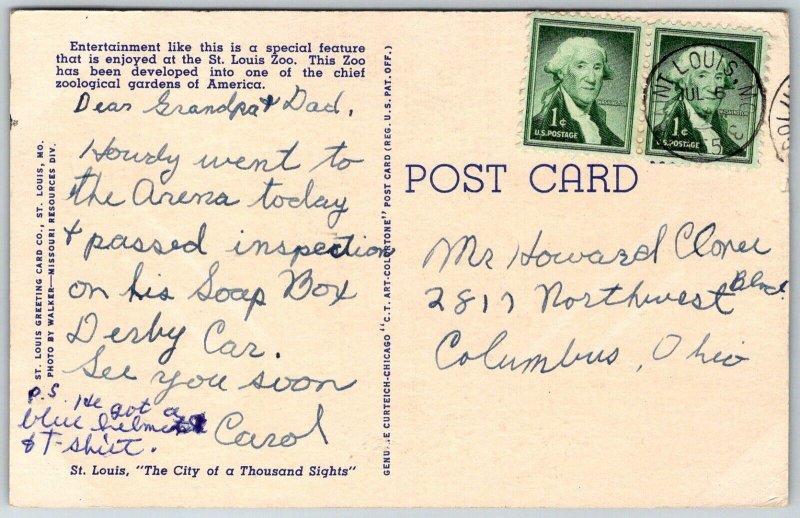 Entertainment like this is a special feature
that is enjoyed at the St. Louis Zoo. This Zoo
has been developed into one of the chief
zoological gardens of America.
Dear Grandpa & Dad,
Howdy went to
the Arena today
& passed inspection
on his Soap Box
Derby Car.
See you soon
Carol
P.S. He got a
blue helmet
& T-shirt.
St. Louis, "The City of a Thousand Sights"
ST. LOUIS GREETING CARD CO., ST. LOUIS, MO.
PHOTO BY WALKER—MISSOURI RESOURCES DIV.
GENUINE CURTEICH-CHICAGO "C.T. ART-COLORTONE" POST CARD (REG. U.S. PAT. OFF.)
1¢
U.S. POSTAGE
1¢
U.S. POSTAGE
SAINT LOUIS, MO.
JUL 6
POST CARD
Mr Howard Clover
2817 Northwest Blvd.
Columbus, Ohio